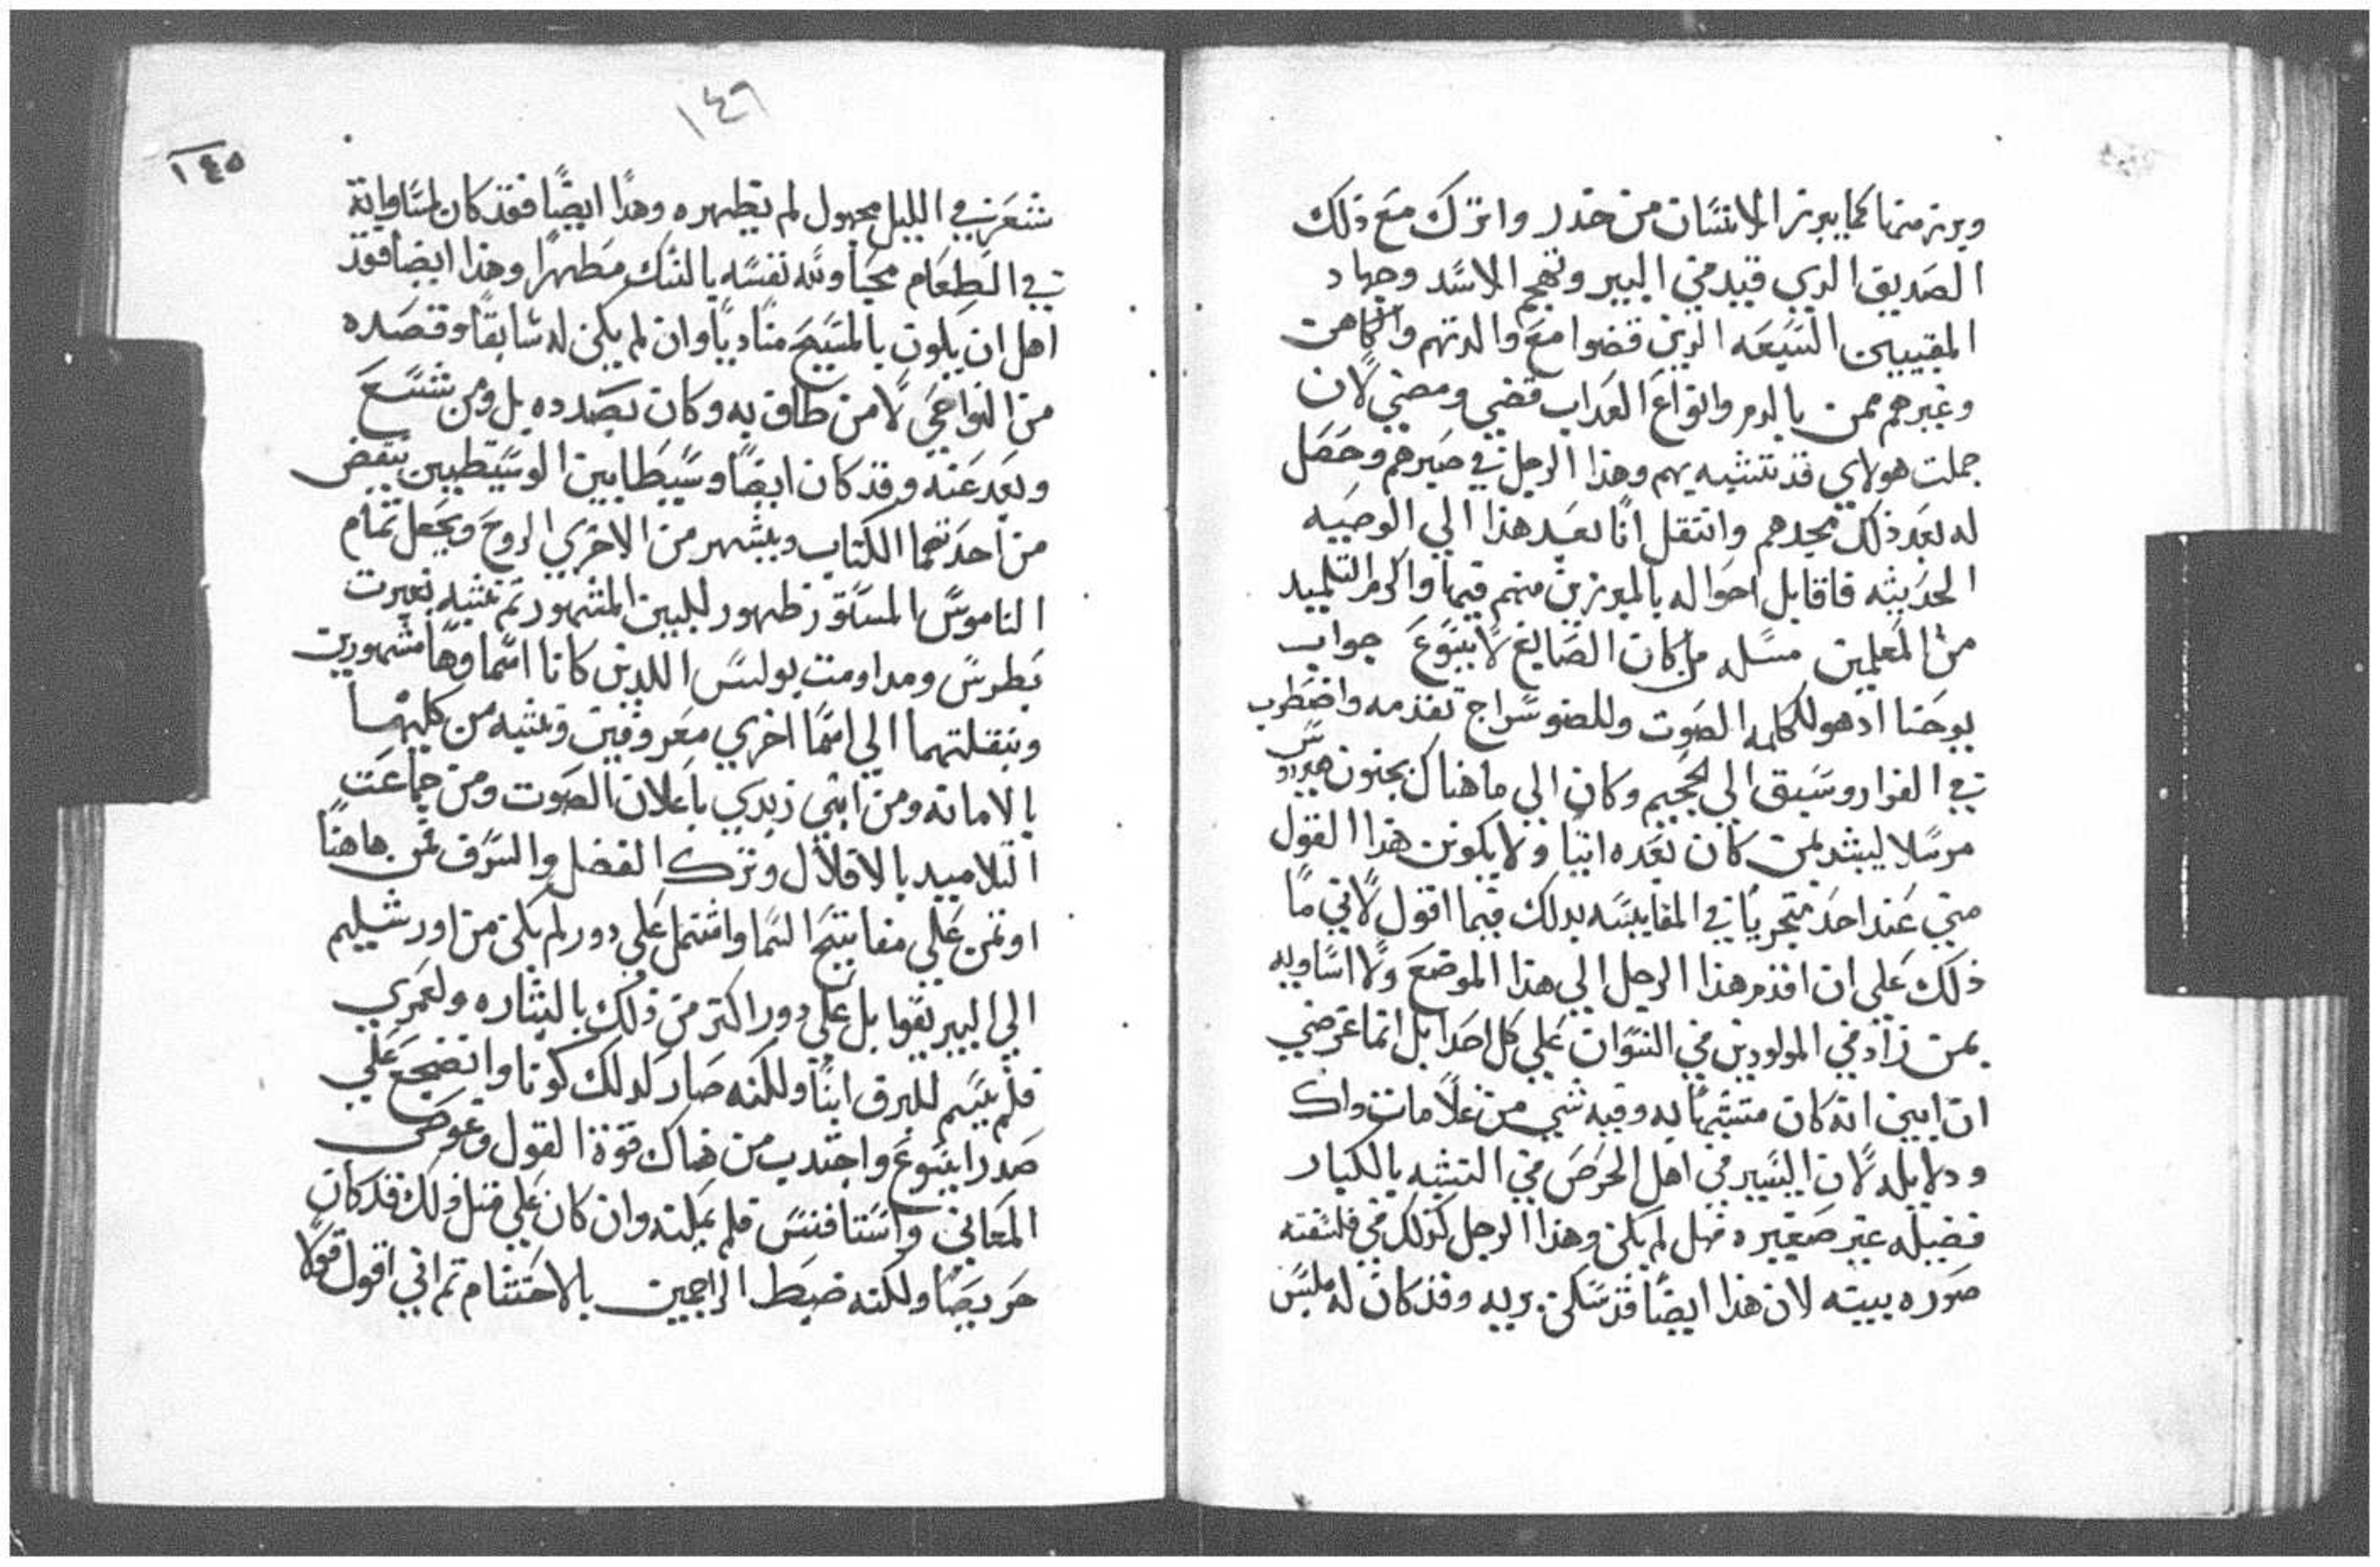 ويبرز منها كما يبرز الانسان من خدر واترك مع ذلك
الصديق الدي قيد في البير وتهجم الاسد وجهاد
المقبيين السبعه الدين قضوا مع والدتهم والكاهن
وغيرهم ممن بالدم وانواع العداب قضي ومضي لان
جملت هولاي قد تشبه بهم وهذا الرجل في صبرهم وحصل
له بعد ذلك مجدهم وانتقل انا بعد هذا الي الوصيه
الحديثه فاقابل احواله بالمبرزين منهم فيها واكرم التلميد
من المعلمين مسله من كان الصايغ لايسوع جواب
يوحنا ادهو للكلمه الصوت وللضو سراج تقدمه واضطرب
في الفرار وسبق الي الجحيم وكان الي ما هناك بجنون هيرودس
مرسلا ليبشر بمن كان بعده اتيا ولا يكونن هذا القول
مني عند احد متجريا في المقايسه بدلك فيما اقول لاني ما
ذلك علي ان اقدم هذا الرجل الي هذا الموضع ولا اساويه
بمن زاد في المولودين في النسوان علي كل احد بل انما غرضي
ان ابين انه كان متشبها به وفيه شي من علامات داك
ودلايله لان اليسير في اهل الحرص في التشبه بالكبار
فضيله غير صغيره فهل لم يكن وهذا الرجل كدلك في فلسفته
صوره بينه لان هذا ايضا قد سكن بريه وقد كان له ملبس
١٤٦
١٤٥
شعر في الليل مجهول لم يظهره وهذا ايضا فقد كان لمساواته
في الطعام محبا ولله نفسه بالنسك مطهرا وهذا ايضا فقد
اهل ان يكون بالمسيح مناديا وان لم يكن له سابقا وقصده
من النواحي لا من طاف به وكان بصدده بل ومن شسع
وبعد عنه وقد كان ايضا وسيطا بين الوسيطين ينقض
من احدهما الكتاب ويشهر من الاخري الروح ويجعل تمام
الناموس المستور ظهور للبين المشهور ثم تشبه بغيرت
بطرس ومداومت بولس اللدين كانا اسماوهما مشهورين
وبنقلتهما الي اسما اخري معروفين وتشبه من كليهما
بالامانه ومن ابني زبدي باعلان الصوت ومن جماعت
التلاميد بالاقلال وترك الفضل والسرف فمن هاهنا
اوتمن علي مفاتيح السما واشتمل علي دور لم يكن من اورشليم
الي البيريقوا بل علي دور اكتر من ذلك بالبشاره ولعمري
فلم يسم للبرق ابنا ولكنه صار لدلك كونا واتضجع علي
صدر ايسوع واجتدب من هناك قوة القول وغوص
المعاني واستافنس فلم يمكنه وان كان علي قتل ذلك قد كان
حريصا ولكنه ضبط الراجمين بالاحتشام ثم اني اقول قولا